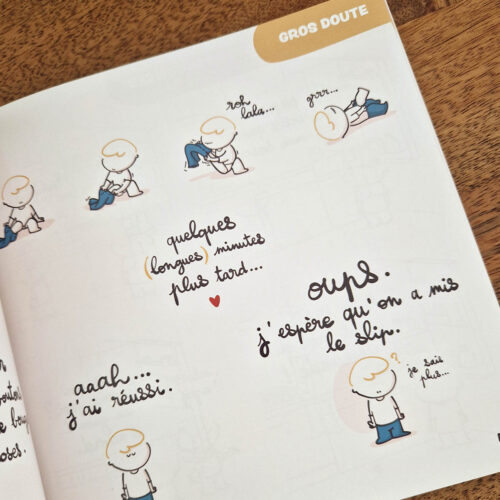 GROS DOUTE
roh
lala...
grrr...
quelques
(longues) minutes
plus tard...
oups.
j'espère qu'on a mis
le slip.
?
je sais
plus...
aaah...
j'ai réussi.